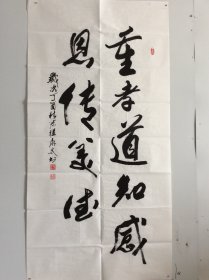 重孝道知感
恩传美德
岁次丁酉